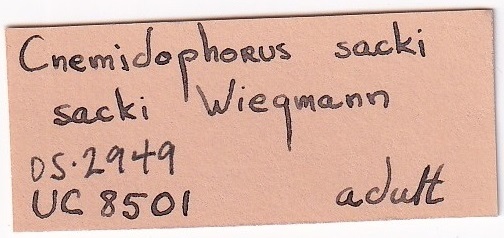 Cnemidophorus sacki
sacki Wiegmann
DS.2949
UC 8501 adult